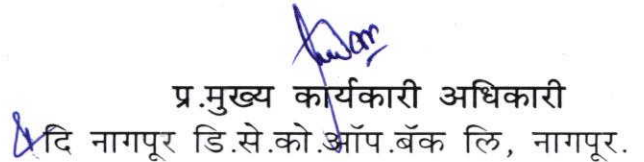 प्र.मुख्य कार्यकारी अधिकारी
दि नागपूर डि.से.को.ऑप.बॅक लि, नागपूर.